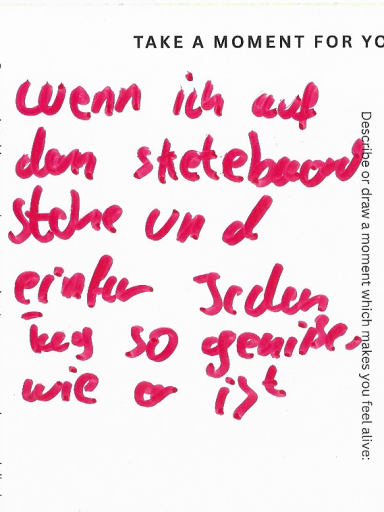 TAKE A MOMENT FOR YO
Describe or draw a moment which makes you feel alive:
wenn ich auf
dem sketeboard
stehe und
einfar Jeden
so genieße,
wie er ist